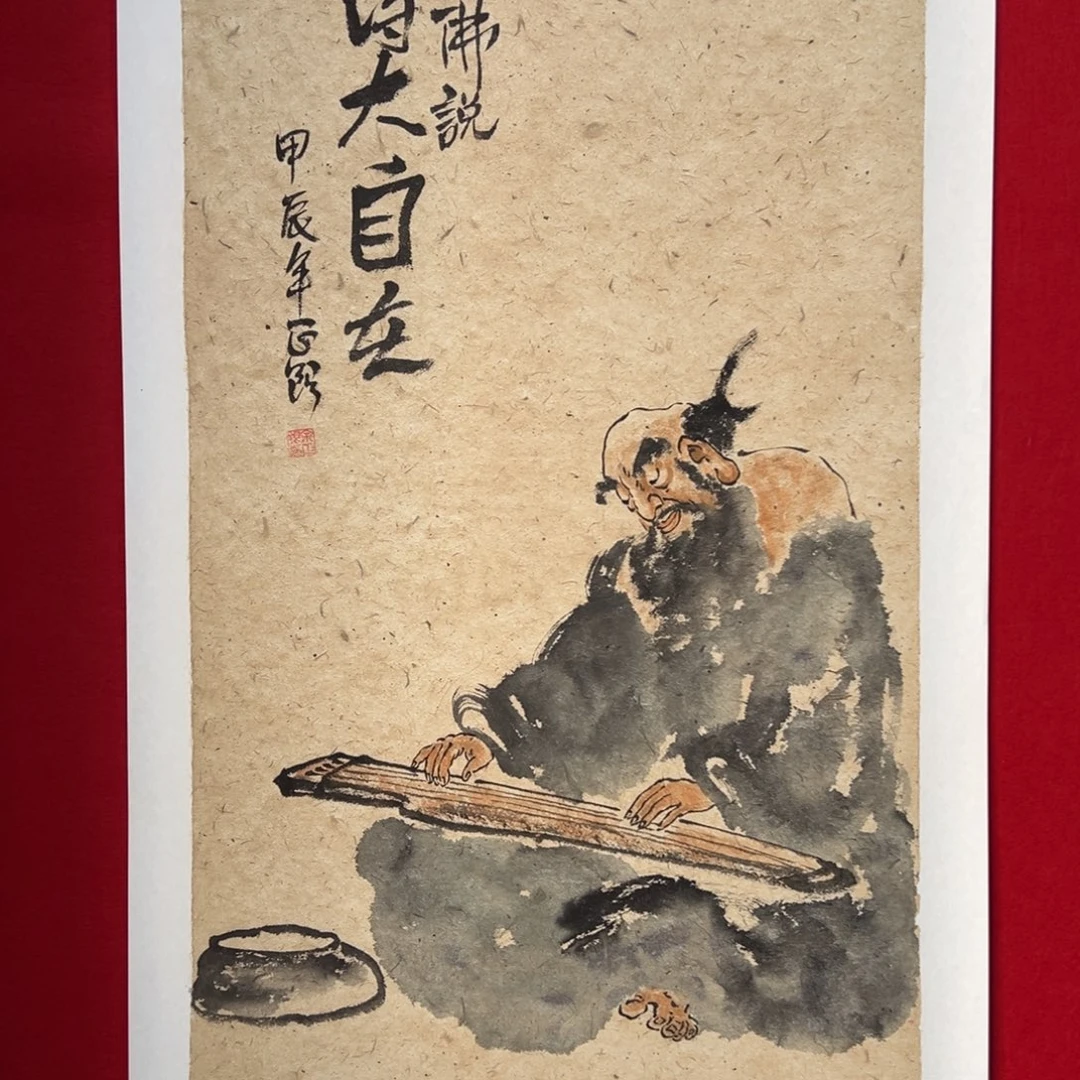 佛説
得大自在
甲辰年正